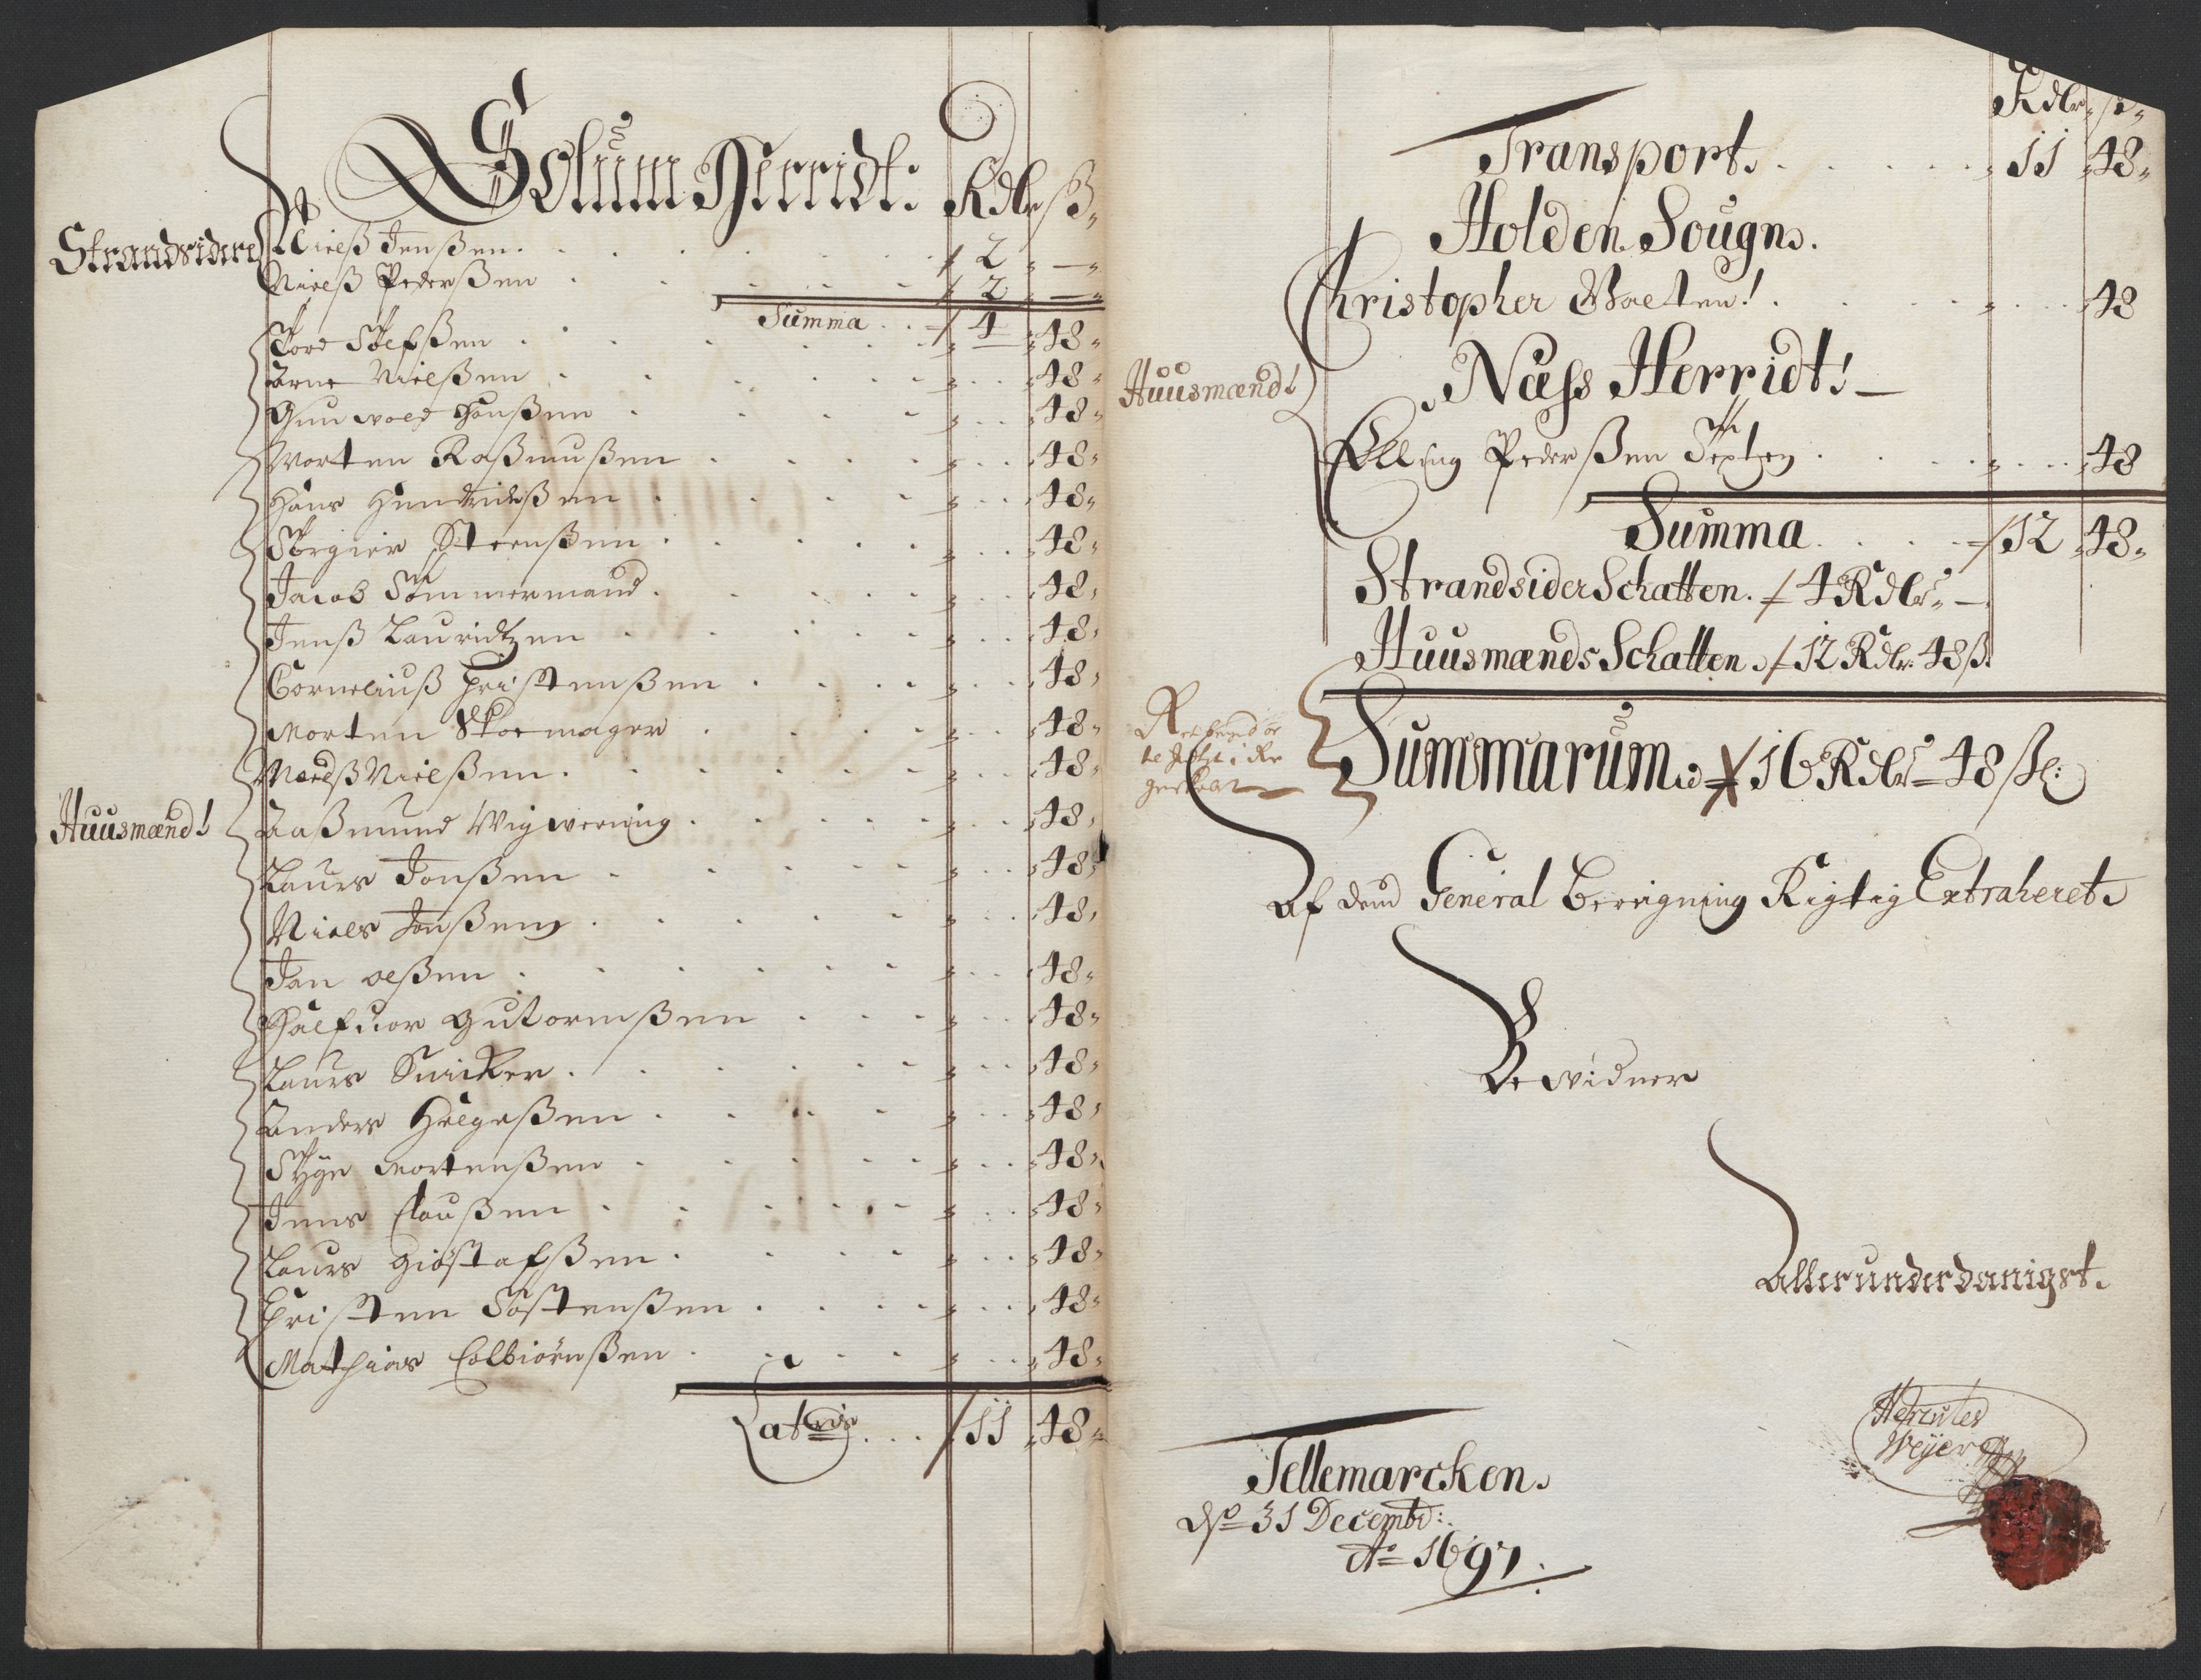 Solum Herridt: Rdlr ß
Strandsidere
Nielß Jenßen 2 —
Nielß Pederßen 2 —
Summa 4 —
Tord Solfßen 48
Arne Nielßen 48
Gunwold Hanßen 48
Morten Raßmußen 48
Hans Hendrichßen 48
Törgier Steenßen 48
Jacob Tömmermand 48
Jenß Lauridtzen 48
Corneliuß Christenßen 48
Morten Skoemager 48
Madß Nielßen 48
Huusmænd
Aaßmund Wigwerning 48
Laurs Jonßen 48
Niels Jonßen 48
Jan Olßen 48
Halfuor Gutormßen 48
Laurs Snicker 48
Anders Helgeßen 48
Tyge Mortenßen 48
Jens Claußen 48
Laurs Giöstafßen 48
Christen Tostenßen 48
Mathias Colbiörnßen 48
Lateris 11 48
Rdlr ß
Transport. 11 48
Holden Sougn.
Christopher Walten 48
Huusmænd
Næss Herridt
Elling Pederßen 48
Summa 12 48
Strandsider Schatten. 4 Rdlr —
Huusmænds Schatten. 12 Rdlr 48 ß
Summarum 16 Rdlr 48 ßl:
Af dend General Bereigning Rigtig Extraheret.
Bewidner
Allerunderdanigst.
Hercules
Weyer
Tellemarcken.
dß 31 Decembr:
Ao 1697.